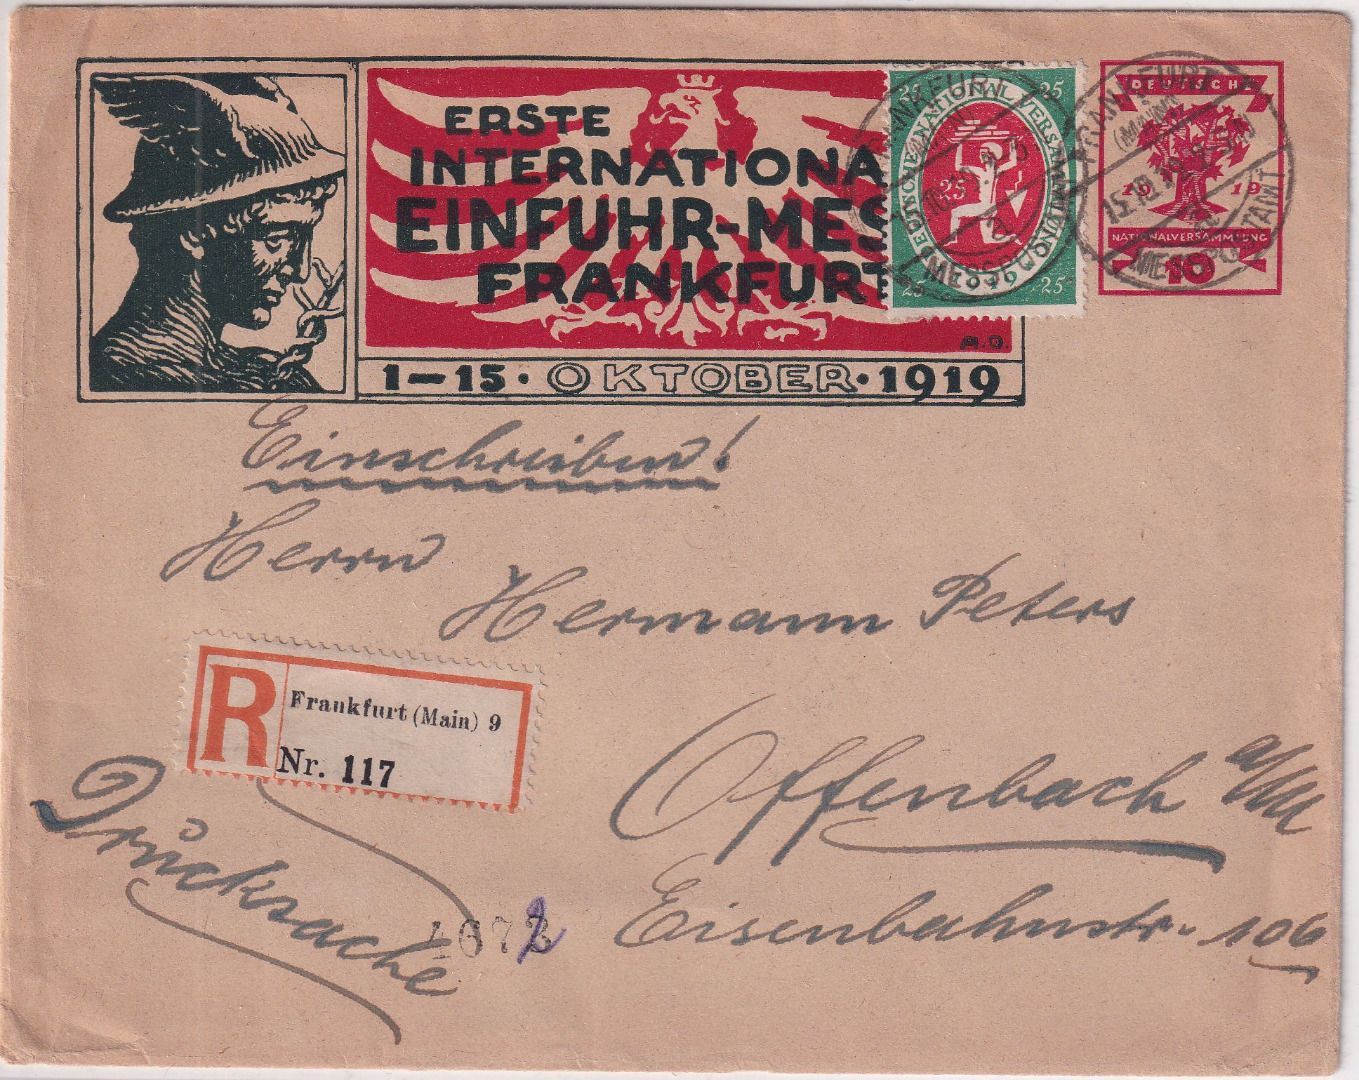 ERSTE
INTERNATIONA
EINFUHR-MES
FRANKFURT
A.O.
1–15·OKTOBER·1919
25 25
DEUTSCHE NATIONALVERSAMMLUNG
25
1919
25 25
FRANKFURT
MESSE
DEUTSCHE
1919
NATIONALVERSAMMLUNG
10
FRANKFURT
(MAIN)
15.10.19
MESSPOSTAMT
Einschreiben!
Herrn
Hermann Peters
R
Frankfurt (Main) 9
Nr. 117
Offenbach a/M
Drucksache
Eisenbahnstr. 106